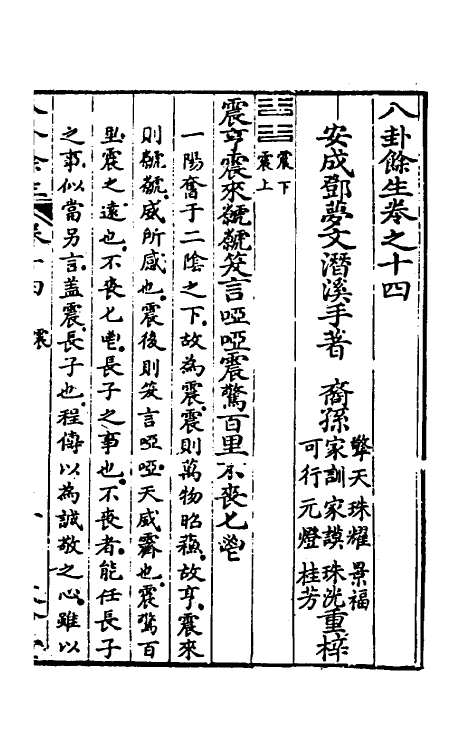 八卦餘生卷之十四
安成鄧夢文潛溪手著 裔孫
擎天 珠耀 景福
家訓 家謨 珠洸
可行 元燈 桂芳
重梓
震下
震上
震亨震來虩虩笑言啞啞震驚百里不喪匕鬯
一陽奮于二陰之下故為震震則萬物昭蘇故亨震來
則虩虩威所感也震後則笑言啞啞天威霽也震驚百
里震之遠也不喪匕鬯長子之事也不喪者能任長子
之事似當另言蓋震長子也程傳以為誠敬之心雖以
震